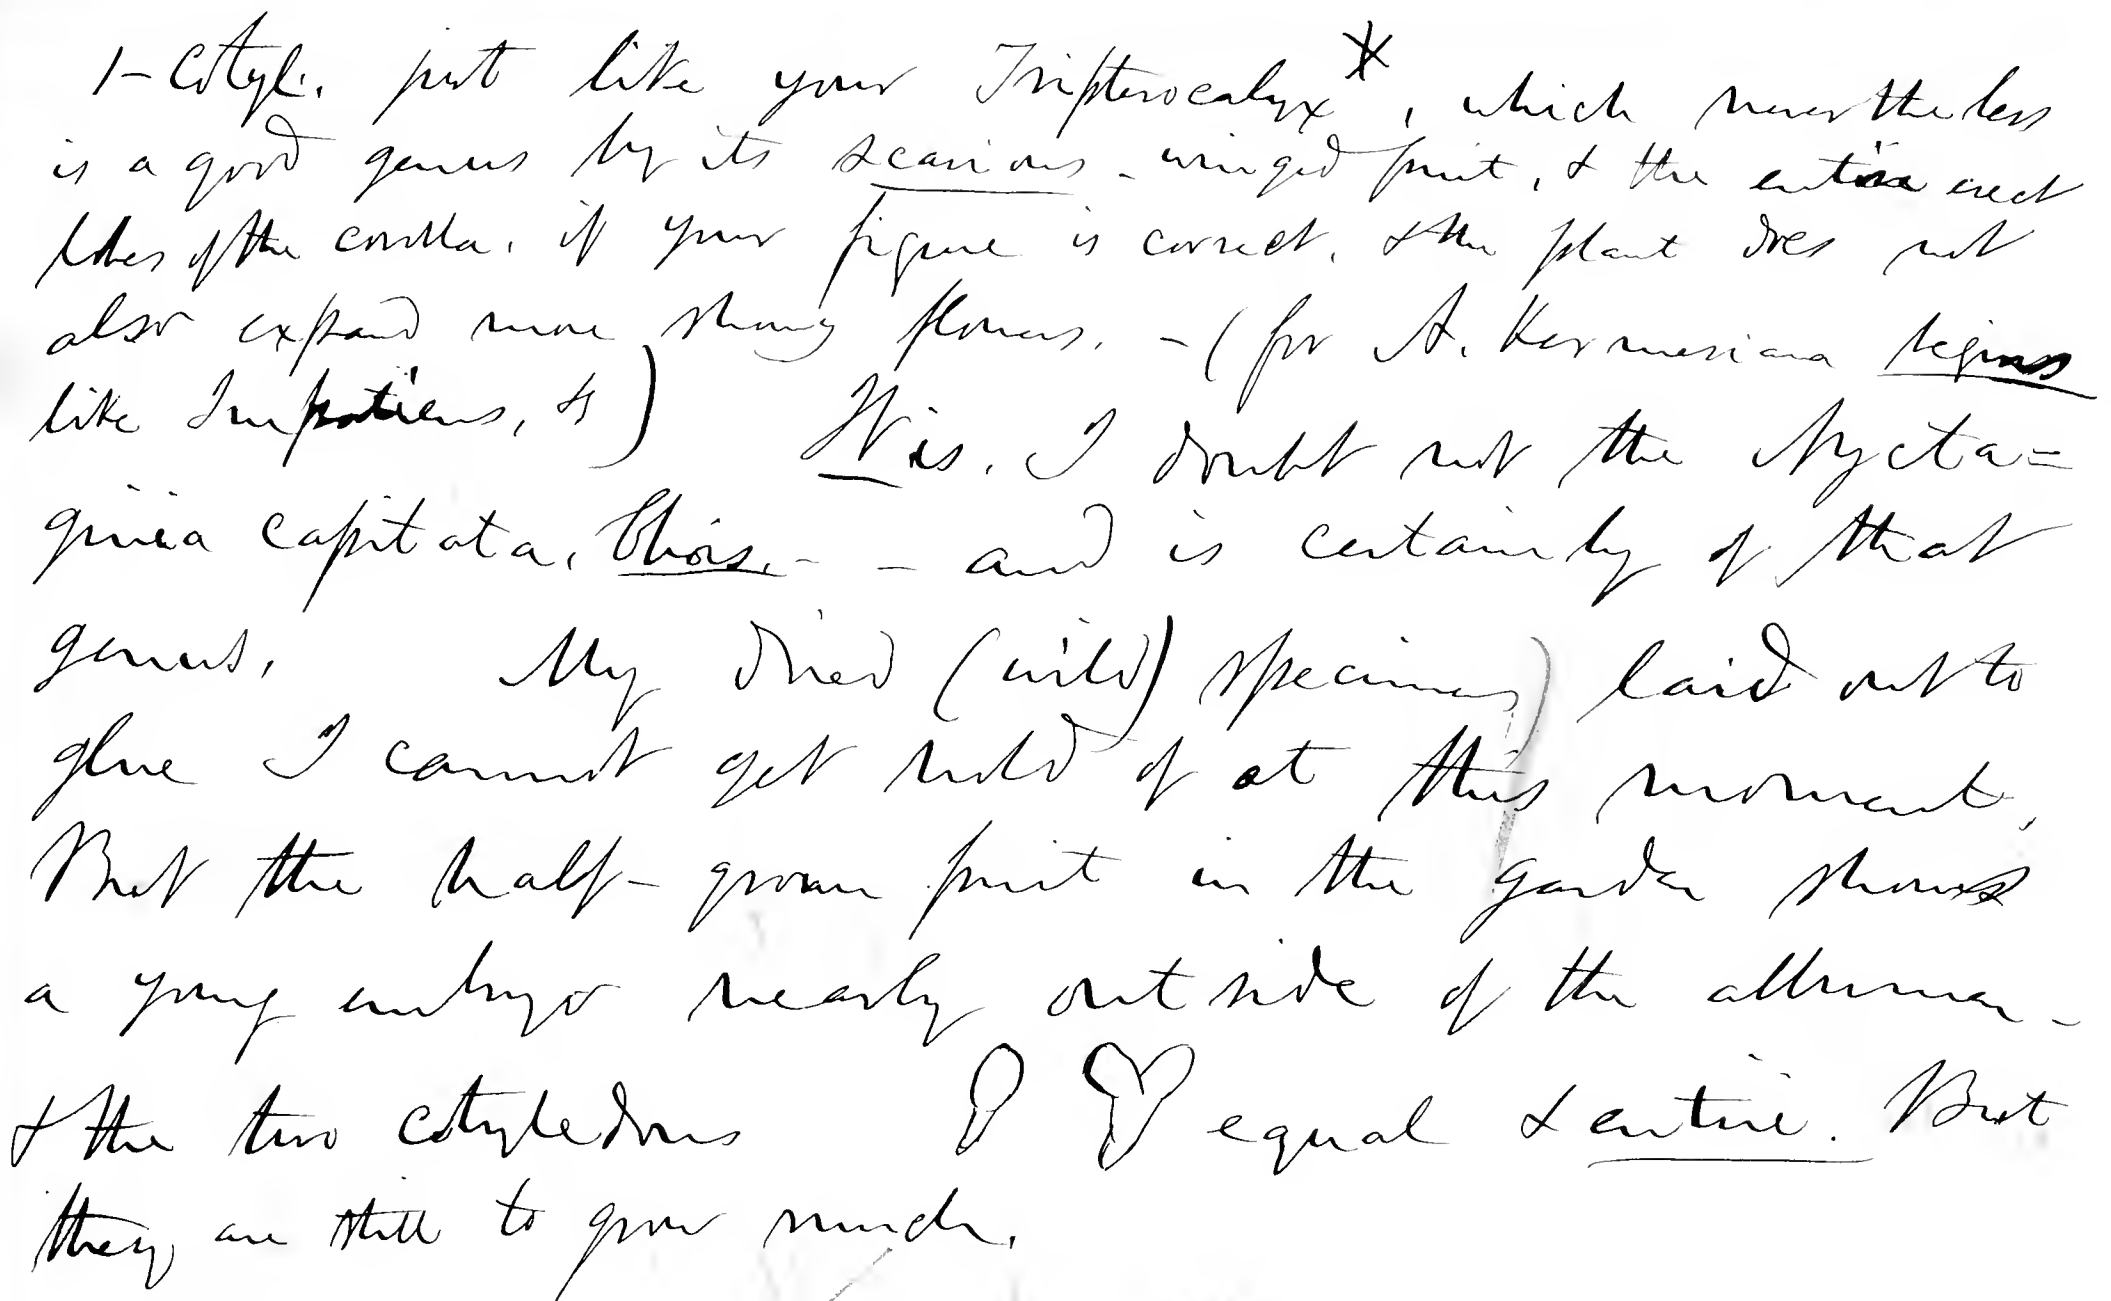 1-Cotyl. just like your Tripterocalyx*, which nevertheless
is a good genus by its scarious-winged fruit, & the entire erect
lobes of the corolla, if your figure is correct, & the plant does not
also expand more showy flowers. - (for A. Kermesiana begins
like Impatiens, &) It is, I doubt not the Nycta=
ginia capitata, Chois. - - and is certainly of that
genus. My dried (wild) specimens) laid out to
glue I cannot get hold of at this moment.
But the half-grown fruit in the garden shows
a young embryo nearly outside of the albumen -
& the two cotyledons equal & entire. But
they are still to grow much.